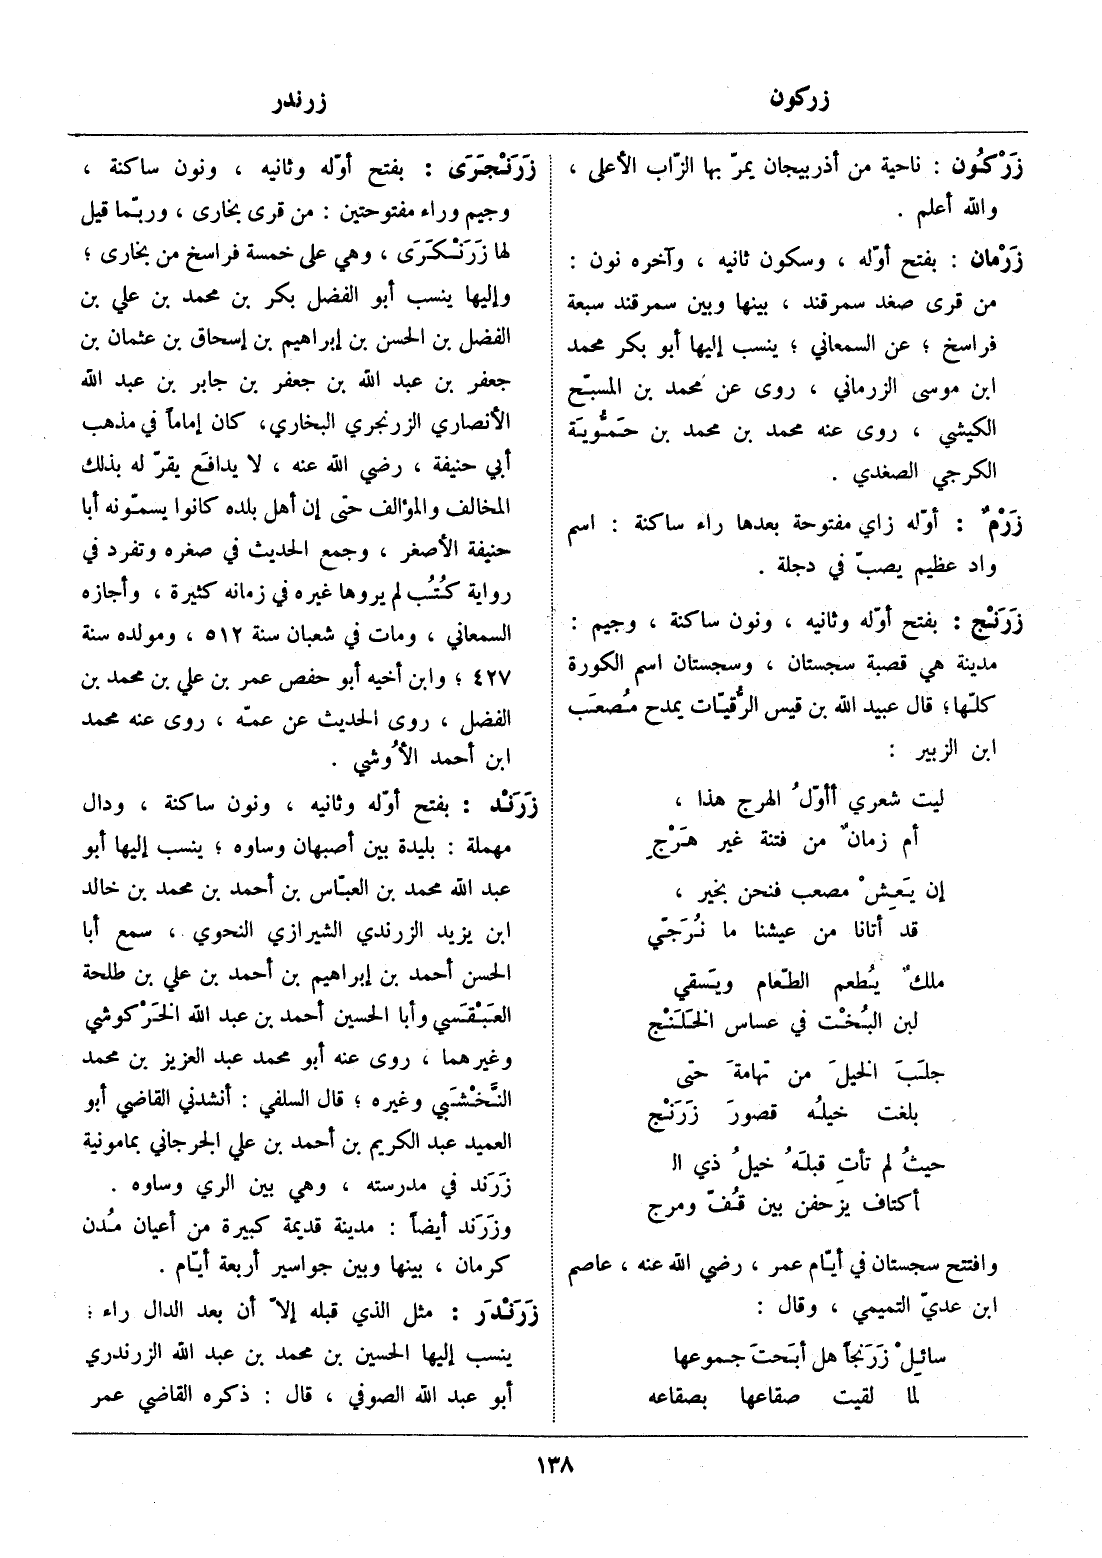 زركون
زرندر
زَرْكُون : ناحية من أذربيجان يمرّ بها الزّاب الأعلى ،
والله أعلم .
زَرْمان : بفتح أوّله ، وسكون ثانيه ، وآخره نون :
من قرى صغد سمرقند ، بينها وبين سمرقند سبعة
فراسخ ؛ عن السمعاني ؛ ينسب إليها أبو بكر محمد
ابن موسى الزرماني ، روى عن محمد بن المسبّح
الكيشي ، روى عنه محمد بن محمد بن حَمُّويَة
الكرجي الصغدي .
زَرْمٌ : أوّله زاي مفتوحة بعدها راء ساكنة : اسم
واد عظيم يصبّ في دجلة .
زَرَنْج : بفتح أوّله وثانيه ، ونون ساكنة ، وجيم :
مدينة هي قصبة سجستان ، وسجستان اسم الكورة
كلّها ؛ قال عبيد الله بن قيس الرُّقيّات يمدح مُصعَب
ابن الزبير :
ليت شعري أأوّلُ الهرج هذا ،
أم زمانٌ من فتنة غير هَرْجِ
إن يَعِشْ مصعب فنحن بخير ،
قد أتانا من عيشنا ما نُرَجّي
ملكٌ يُطعم الطّعام ويَسقي
لبن البُخْت في عساس الخَلَنْج
جلَبَ الخيلَ من تهامةَ حتّى
بلغت خيلُه قصورَ زَرَنْج
حيثُ لم تأتِ قبلَهُ خيلُ ذي ال
أكتاف يزحفن بين قُفّ ومرج
وافتتح سجستان في أيّام عمر ، رضي الله عنه ، عاصم
ابن عديّ التميمي ، وقال :
سائِلْ زَرَنجاً هل أبَحتَ جموعها
لما لقيت صقاعها بصقاعه
زَرَنْجَرَى : بفتح أوّله وثانيه ، ونون ساكنة ،
وجيم وراء مفتوحتين : من قرى بخارى ، وربّما قيل
لها زَرَنْكَرَى ، وهي على خمسة فراسخ من بخارى ؛
وإليها ينسب أبو الفضل بكر بن محمد بن علي بن
الفضل بن الحسن بن إبراهيم بن إسحاق بن عثمان بن
جعفر بن عبد الله بن جعفر بن جابر بن عبد الله
الأنصاري الزرنجري البخاري، كان إماماً في مذهب
أبي حنيفة ، رضي الله عنه ، لا يدافَع يقرّ له بذلك
المخالف والمؤالف حتى إن أهل بلده كانوا يسمّونه أبا
حنيفة الأصغر ، وجمع الحديث في صغره وتفرد في
رواية كُتُب لم يروها غيره في زمانه كثيرة ، وأجازه
السمعاني ، ومات في شعبان سنة ٥١٢ ، ومولده سنة
٤٢٧ ؛ وابن أخيه أبو حفص عمر بن علي بن محمد بن
الفضل ، روى الحديث عن عمّه ، روى عنه محمد
ابن أحمد الأُوشي .
زَرَنْد : بفتح أوّله وثانيه ، ونون ساكنة ، ودال
مهملة : بليدة بين أصبهان وساوه ؛ ينسب إليها أبو
عبد الله محمد بن العبّاس بن أحمد بن محمد بن خالد
ابن يزيد الزرندي الشيرازي النحوي ، سمع أبا
الحسن أحمد بن إبراهيم بن أحمد بن علي بن طلحة
العَبْقَسي وأبا الحسين أحمد بن عبد الله الخَرْكوشي
وغيرهما ، روى عنه أبو محمد عبد العزيز بن محمد
النَّخْشَبي وغيره ؛ قال السلفي : أنشدني القاضي أبو
العميد عبد الكريم بن أحمد بن علي الجرجاني بمامونية
زَرَند في مدرسته ، وهي بين الري وساوه .
وزَرَند أيضاً : مدينة قديمة كبيرة من أعيان مُدن
كرمان ، بينها وبين جواسير أربعة أيّام .
زَرَنْدَر : مثل الذي قبله إلاّ أن بعد الدال راء ؛
ينسب إليها الحسين بن محمد بن عبد الله الزرندري
أبو عبد الله الصوفي ، قال : ذكره القاضي عمر
١٣٨